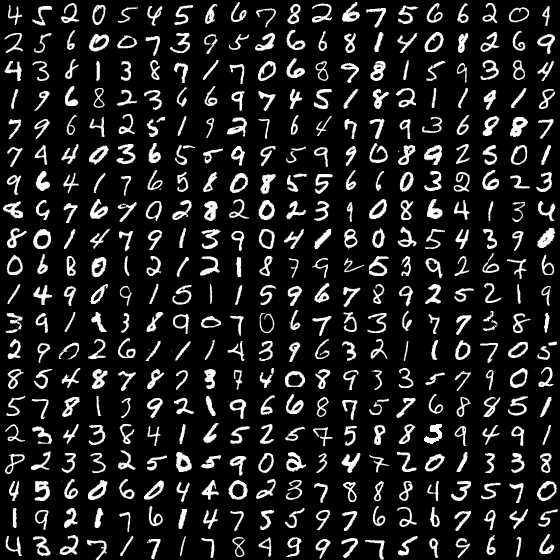 4 5 2 0 5 4 5 6 6 7 8 2 6 7 5 6 6 2 0 9
2 5 6 0 0 7 3 9 5 2 6 6 8 1 4 0 8 2 6 9
4 3 8 1 3 8 7 1 7 0 6 8 9 8 1 5 9 3 8 4
1 9 6 8 2 3 6 6 9 7 4 5 1 8 2 1 1 9 1 8
7 9 6 4 2 5 1 9 2 7 6 4 7 7 9 3 6 8 8 7
7 4 4 0 3 6 5 5 9 9 5 9 9 0 8 9 2 5 0 1
9 6 4 1 7 6 5 8 0 8 5 5 6 1 0 3 2 6 2 3
8 9 7 6 7 0 2 8 2 0 2 3 9 0 8 6 4 1 3 4
8 0 1 4 7 9 1 3 9 0 4 1 8 0 2 5 4 3 9 0
0 6 8 0 1 2 1 2 1 8 7 9 2 5 3 9 2 6 7 6
1 4 9 0 9 1 5 1 1 5 9 6 7 8 9 2 5 2 1 9
3 9 1 9 3 8 9 0 7 0 6 7 3 3 6 7 7 3 8 1
2 9 0 2 6 1 1 1 4 3 9 6 3 2 1 1 0 7 0 5
8 5 4 8 7 8 7 3 7 4 0 8 9 3 3 5 7 9 0 2
5 7 8 1 3 9 2 1 9 6 6 8 7 5 7 6 8 8 5 1
2 3 4 3 8 4 1 6 5 2 5 7 5 8 8 5 9 4 9 1
8 2 3 3 2 5 0 5 9 0 2 3 4 7 2 0 1 3 3 8
4 5 6 0 6 0 4 4 0 2 3 7 8 8 8 4 3 5 7 0
1 9 2 1 7 6 1 4 7 5 5 9 7 6 2 6 7 9 4 5
4 3 2 7 1 7 1 7 8 4 9 9 7 7 5 9 9 6 1 6